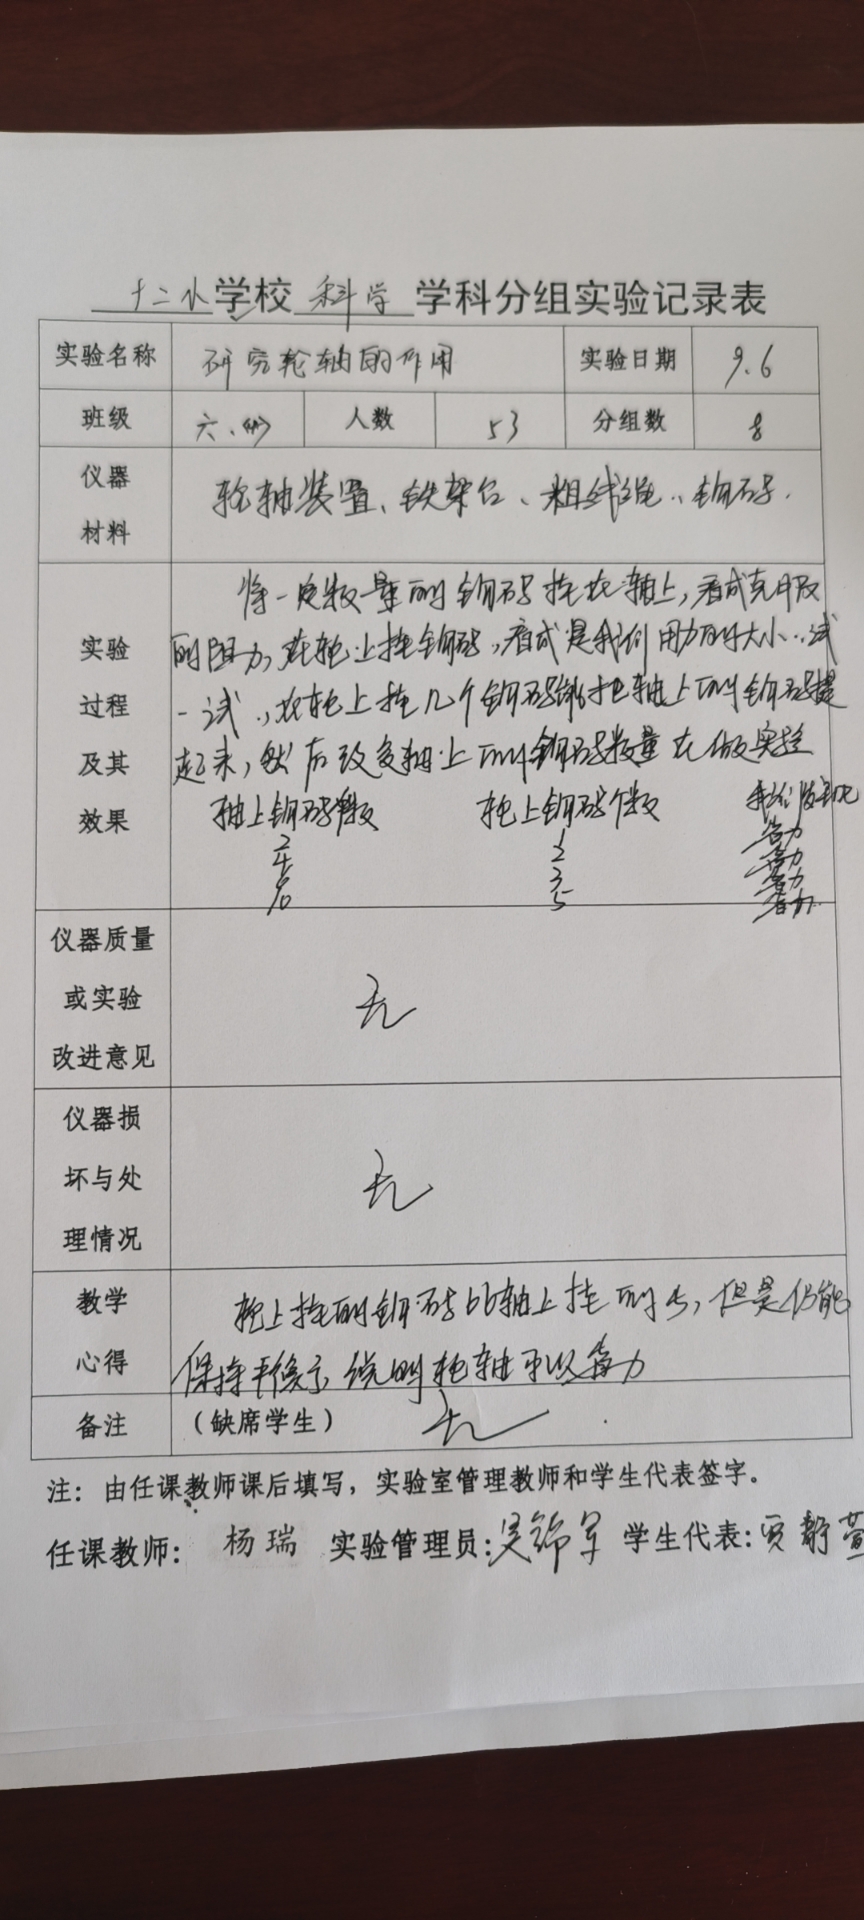 十二小学校 科学 学科分组实验记录表
实验名称 研究轮轴的作用 实验日期 9.6
班级 六、 人数 53 分组数 8
仪器材料 轮轴装置、铁架台、粗线绳、钩码.
实验过程及其效果
将一定数量的钩码挂在轴上,看成克服
的阻力,在轮上挂钩码,看成是我们用力的大小.试
一试,在轮上挂几个钩码能把轴上的钩码提
起来,然后改变轴上的钩码数量在做实验
轴上钩码个数 轮上钩码个数 我们发现
2 1 省力
4 2 省力
6 3 省力
10 5 省力
仪器质量或实验改进意见 无
仪器损坏与处理情况 无
教学心得 轮上挂的钩码比轴上挂的少,但是仍能
保持平衡,说明轮轴可以省力
备注 (缺席学生) 无
注：由任课教师课后填写，实验室管理教师和学生代表签字。
任课教师: 杨瑞 实验管理员:吴锦军 学生代表:贾静萱